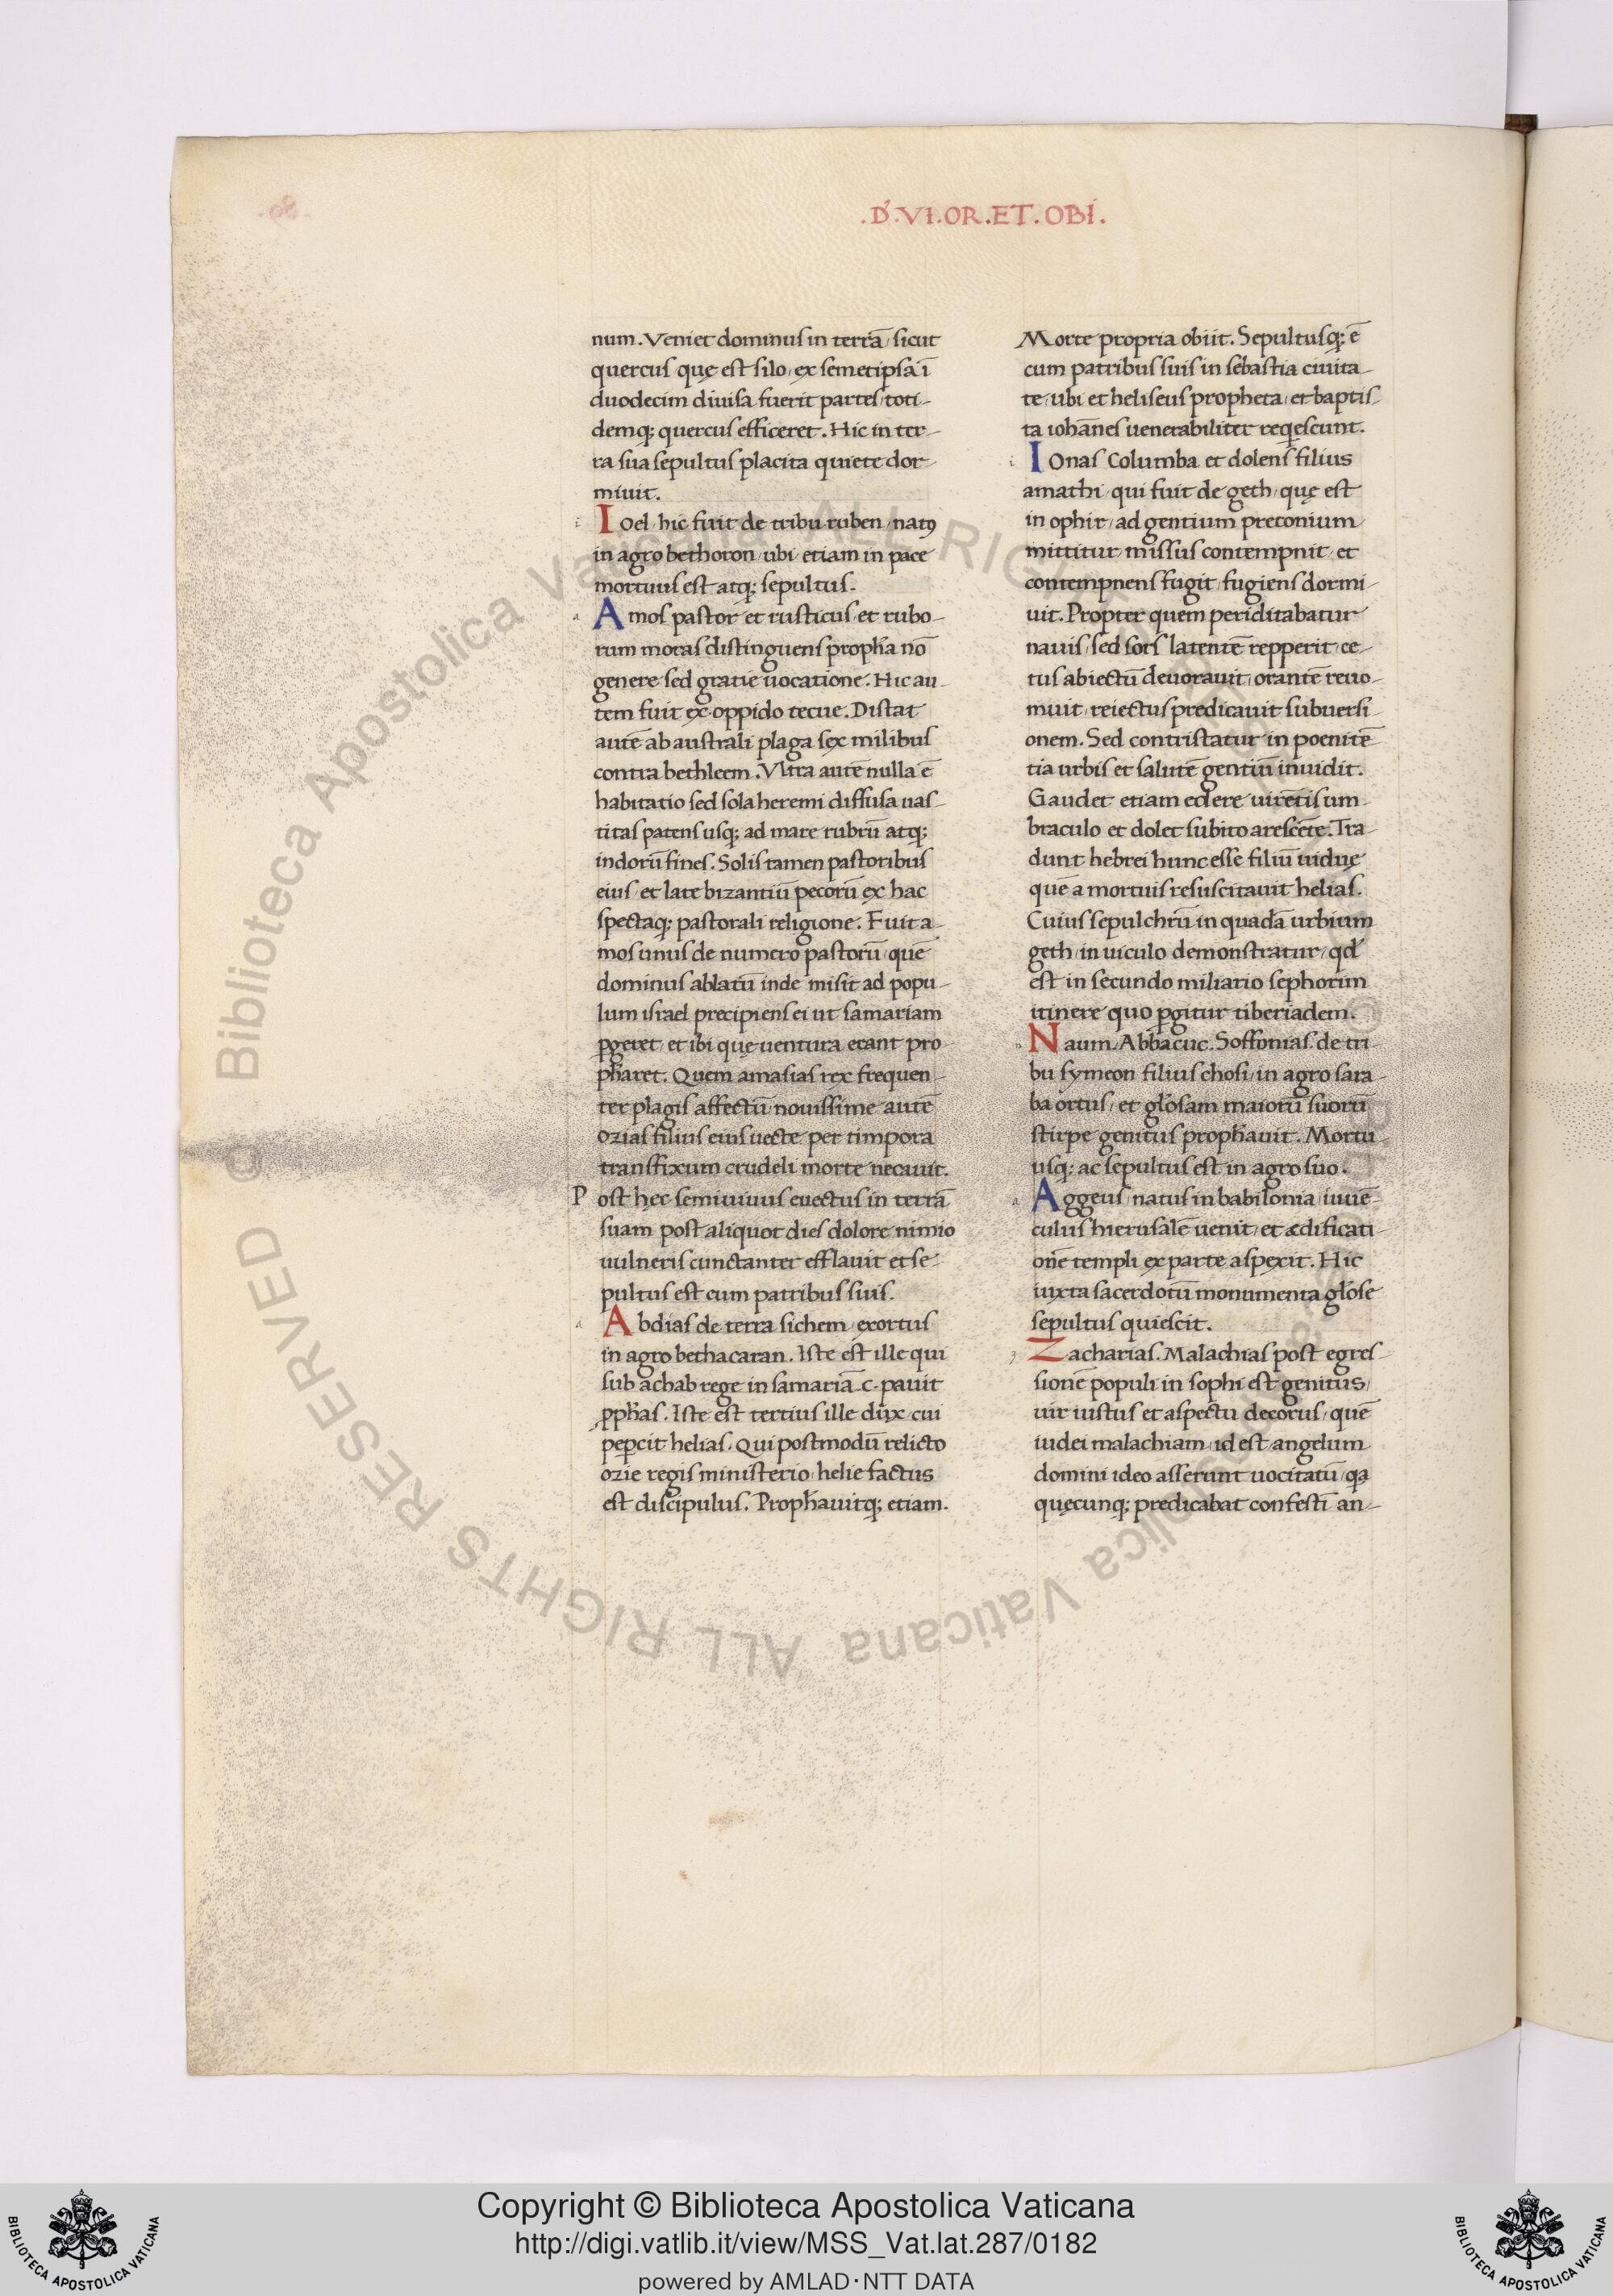 .D̛.VI.OR.ET.OBI̛.
num. Veniet dominus in terrā, sicut
quercus quę est silo, ex semetipsa ī
duodecim diuisa fuerit partes, toti-
demq; quercus efficeret. Hic in ter-
ra sua sepultus placita quiete dor-
miuit.
i IOel, hic fuit de tribu ruben, natꝰ
in agro bethoron, ubi etiam in pace
mortuus est atq; sepultus.
a Amos pastor et rusticus et rubo-
rum moras distinguens proph̄a nō
genere sed gratie uocatione. Hic au-
tem fuit ex oppido tecue. Distat
autē ab australi plaga sex milibus
contra bethleem. Vltra autē nulla ē
habitatio sed sola heremi diffusa uas-
titas patens usq; ad mare rubrū atq;
indorū fines. Solis tamen pastoribus
eius, et late bizantiū pecorū ex hac
spectaq; pastorali religione. Fuit a-
mos unus de numero pastorū, quē
dominus ablatū inde misit ad popu-
lum israel precipiens ei ut samariam
ꝑgeret, et ibi quę uentura erant pro
ph̄aret. Quem amasias rex frequen-
ter plagis affectū nouissime autē
ozias filius eius uecte per timpora
transfixum crudeli morte necauit.
Post hec semiuiuus euectus in terrā
suam post aliquot dies dolore nimio
uulneris cunctanter efflauit et se-
pultus est cum patribus suis.
a Abdias de terra sichem, exortus
in agro bethacaran. Iste est ille qui
sub achab rege in samariā .c. pauit
ꝓph̄as. Iste est tertius ille dux, cui
peꝑcit helias. Qui postmodū relicto
ozie regis ministerio, helie factus
est discipulus. Proph̄auitq; etiam.
Morte propria obiit. Sepultusq; ē
cum patribus suis in sebastia ciuita-
te, ubi et heliseus propheta, et baptis-
ta iohānes uenerabiliter reqescunt.
i IOnas Columba et dolens filius
amathi, qui fuit de geth, quę est
in ophir, ad gentium preconium
mittitur, missus contempnit, et
contempnens fugit, fugiens dormi-
uit. Propter quem periclitabatur
nauis, sed sors latentē repperit, ce-
tus abiectū deuorauit, orantē reuo-
muit, reiectus predicauit subuersi-
onem. Sed contristatur in poenitē
tia urbis et salutē gentiū inuidit.
Gaudet etiam edere uirētis um-
braculo et dolet subito arescēte. Tra-
dunt hebrei hunc esse filiū uiduę
quē a mortuis resuscitauit helias.
Cuius sepulchrū in quadā urbium
geth, in uiculo demonstratur, qd̄
est in secundo miliario sephorim
itinere quo ꝑgitur tiberiadem.
n Naum. Abbacuc. Soffonias. de tri-
bu symeon filius chosi, in agro sara-
ba ortus, et glōsam maiorū suorū
stirpe genitus proph̄auit. Mortu
usq; ac sepultus est in agro suo.
a Aggeus, natus in babilonia, iuuē-
culus hierusalē uenit, et ædificati
onē templi ex parte aspexit. Hic
iuxta sacerdotū monumenta glōse
sepultus quiescit.
z Zacharias. Malachias post egres-
sionē populi in sophi est genitus,
uir iustus et aspectu decorus, quē
iudei malachiam, id est, angelum
domini ideo asserunt uocitatū, qa
quęcunq; predicabat confestī an-
© Biblioteca Apostolica Vaticana ALL RIGHTS RESERVED
Copyright © Biblioteca Apostolica Vaticana
http://digi.vatlib.it/view/MSS_Vat.lat.287/0182
powered by AMLAD·NTT DATA
BIBLIOTECA APOSTOLICA VATICANA
BIBLIOTECA APOSTOLICA VATICANA